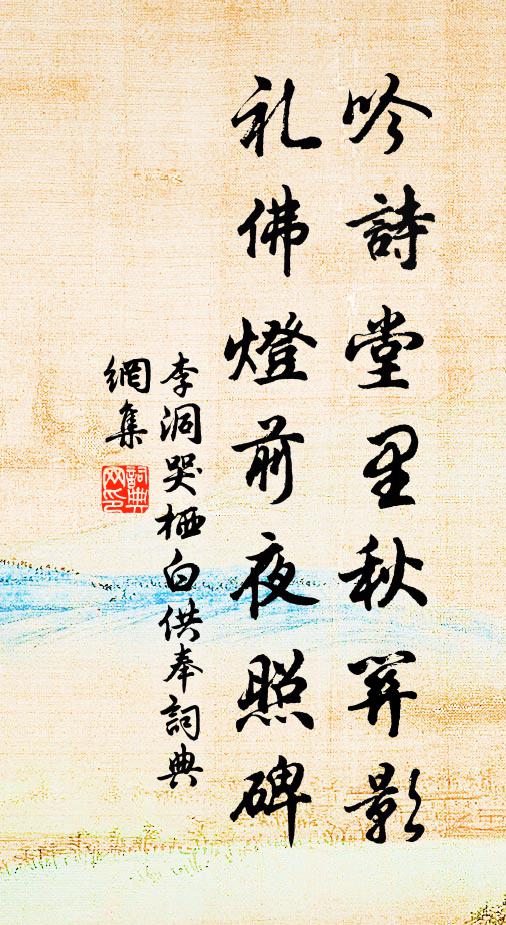 吟詩堂里秋関影
礼佛燈前夜照碑
李洞哭栖白供奉詞典
網集
詞典
网印